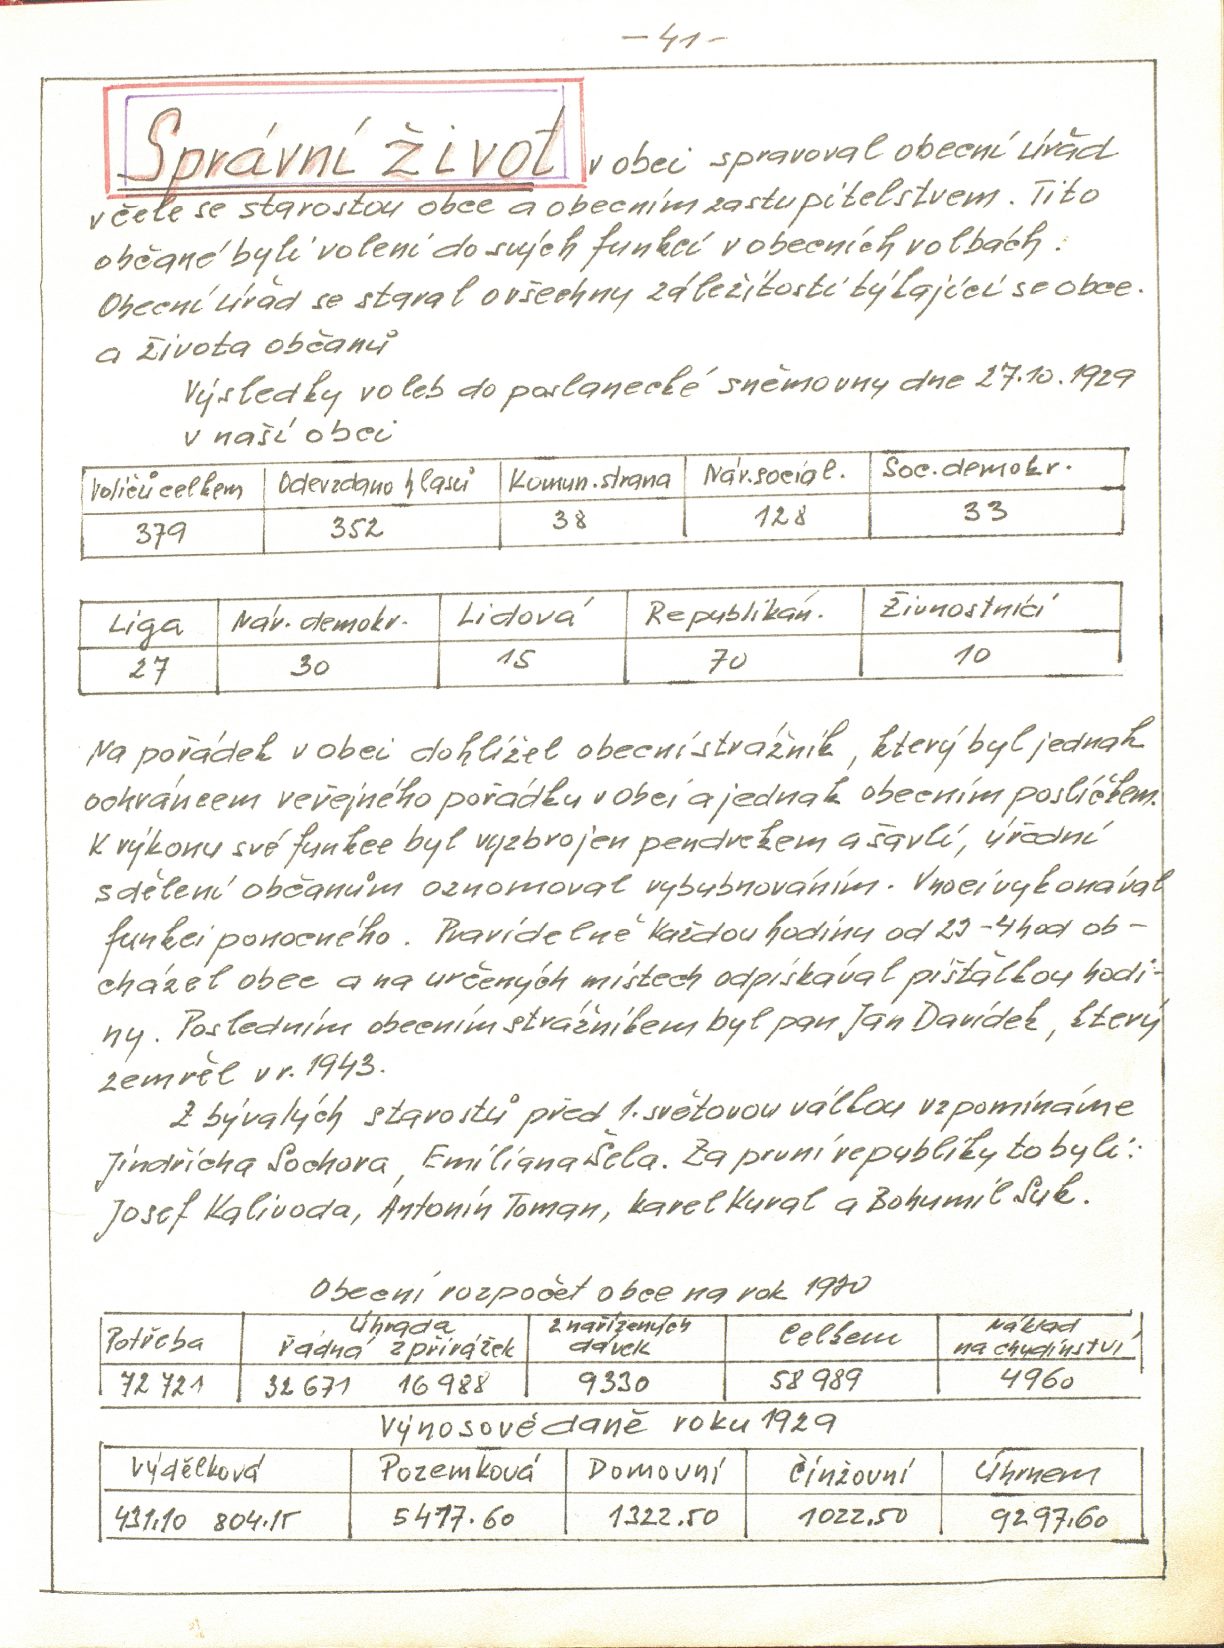 - 41 -
Správní život v obci spravoval obecní úřad
v čele se starostou obce a obecním zastupitelstvem. Tito
občané byli voleni do svých funkcí v obecních volbách.
Obecní úřad se staral o všechny záležitosti týkající se obce.
a života občanů
Výsledky voleb do poslanecké sněmovny dne 27.10.1929
v naší obci
Voličů celkem Odevzdano hlasů Komun. strana Nár. social. Soc. demokr.
379 352 38 128 33
Liga Nár. demokr. Lidová Republikán. Živnostníci
27 30 15 70 10
Na pořádek v obci dohlížel obecní strážník, který byl jednak
ochráncem veřejného pořádku v obci a jednak obecním poslíčkem.
K výkonu své funkce byl vyzbrojen pendrekem a šavlí, úřední
sdělení občanům oznomoval vybubnováním. V noci vykonával
funkci ponocného. Pravidelně každou hodinu od 23 - 4 hod ob-
cházel obec a na určených místech odpískával píšťalkou hodi-
ny. Posledním obecním strážníkem byl pan Jan Davídek, který
zemřel v r. 1943.
Z bývalých starostů před 1. světovou válkou vzpomínáme
Jindřicha Sochora, Emiliana Šela. Za první republiky to byli:
Josef Kalivoda, Antonín Toman, Karel Kural a Bohumil Suk.
Obecní rozpočet obce na rok 1930
Potřeba Úhrada z nařízených Celkem Náklad
řádná z přirážek dávek na chudinství
72 721 32 671 16 988 9330 58 989 4960
Výnosové daně roku 1929
Výdělková Pozemková Domovní Činžovní Úhrnem
431.10 804.15 5417.60 1322.50 1022.50 9297.60